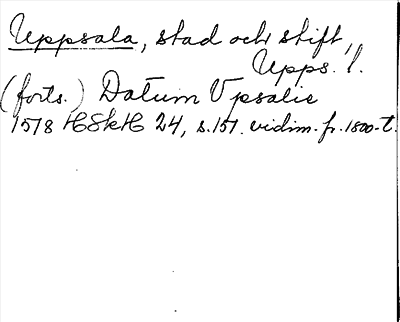 Uppsala, stad och stift,
Upps. l.
(forts.) Datum Vpsalie
1578 HSkH 24, s. 151. vidim. fr. 1800-t.